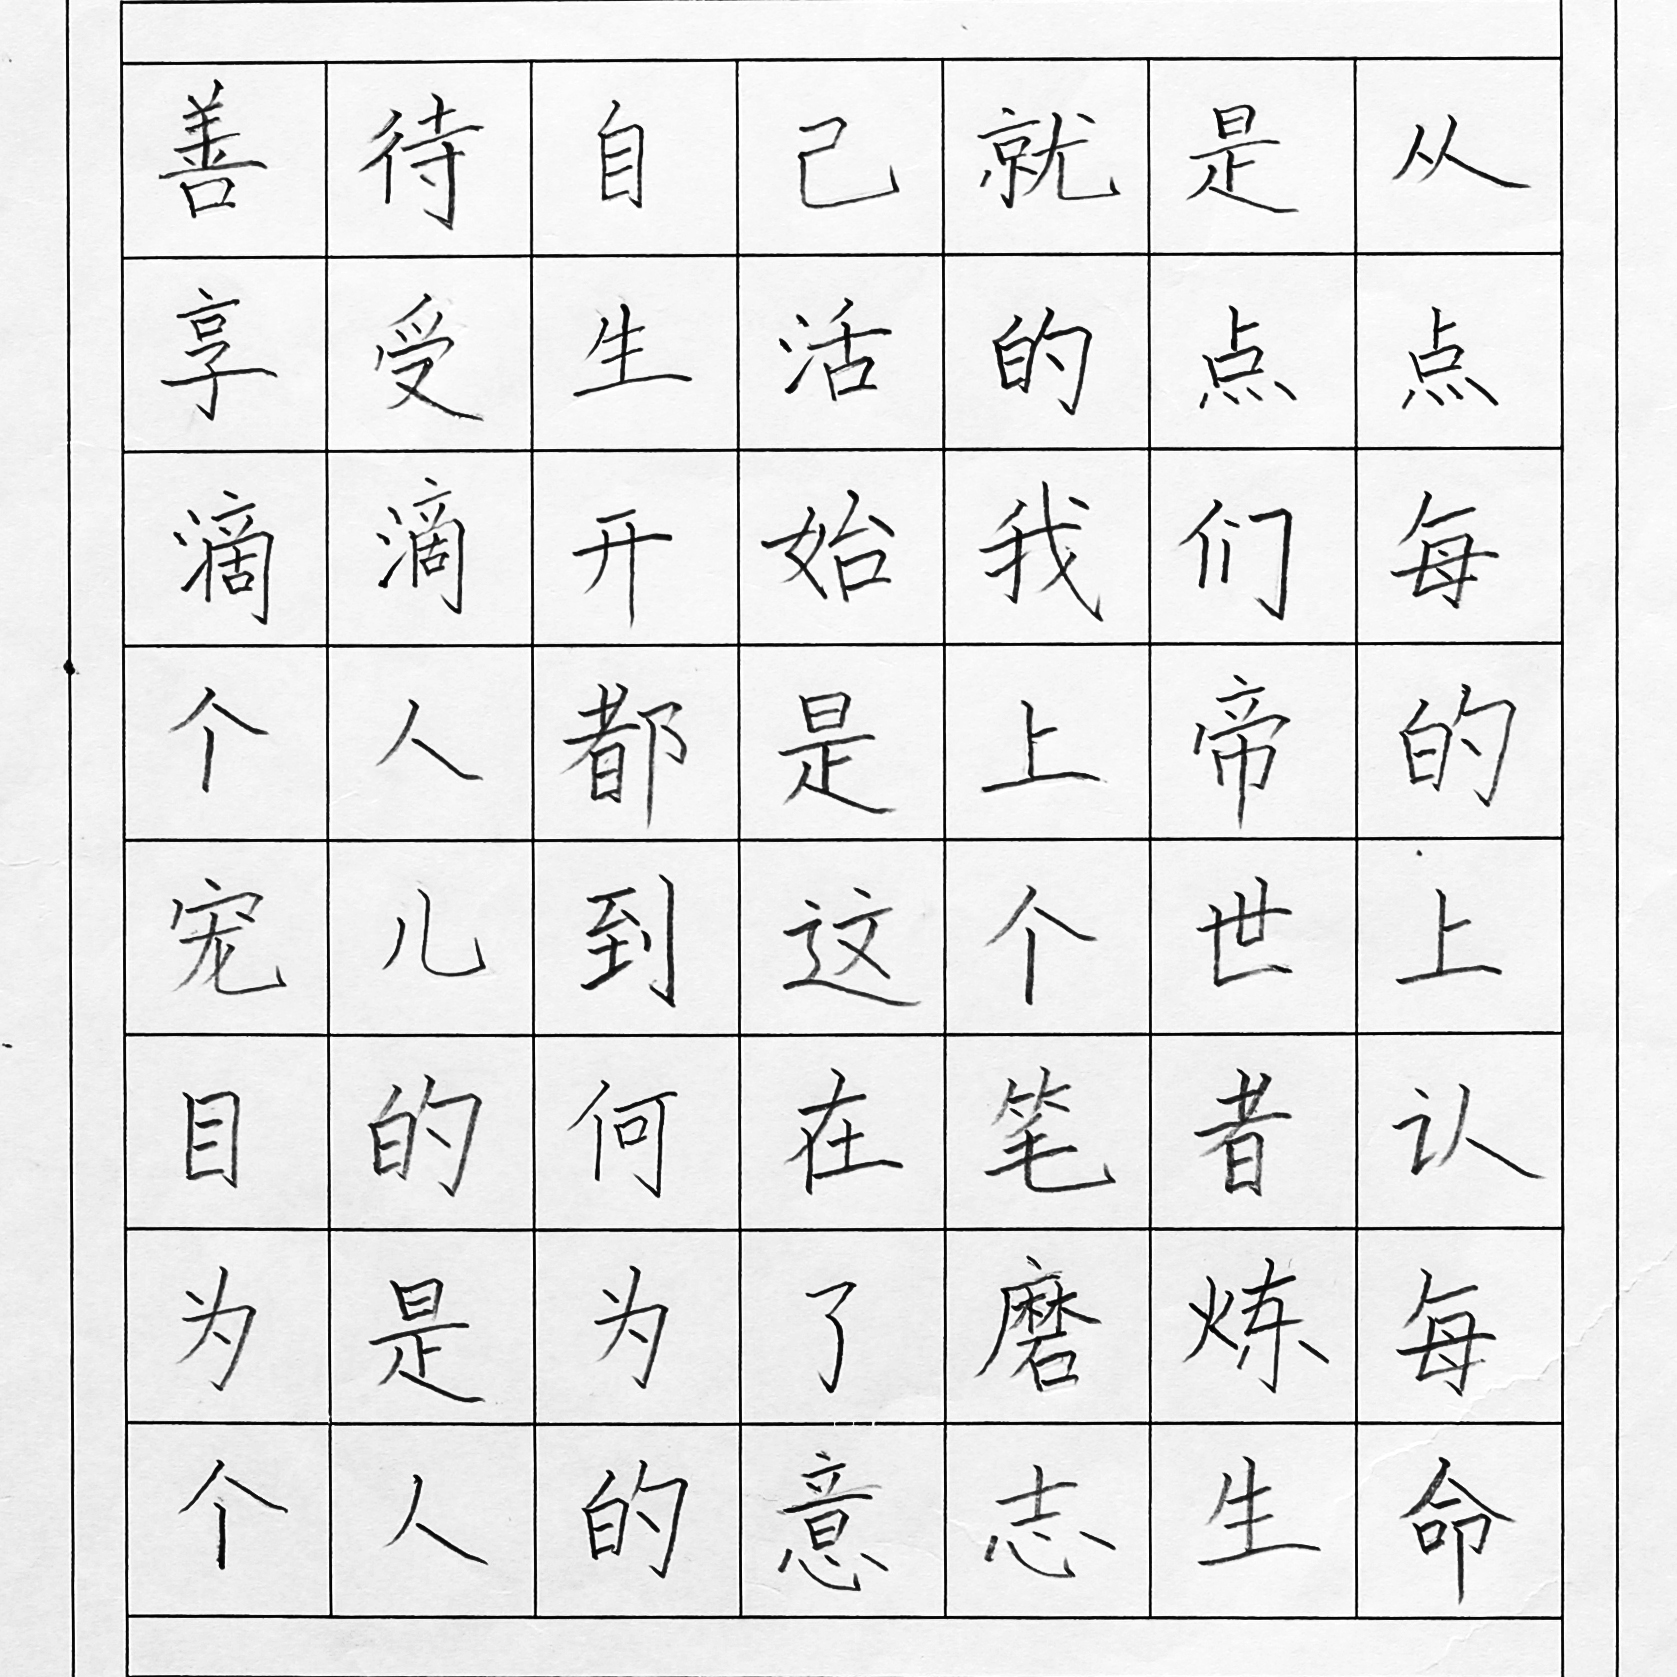 善待自己就是从
享受生活的点点
滴滴开始我们每
个人都是上帝的
宠儿到这个世上
目的何在笔者认
为是为了磨炼每
个人的意志生命